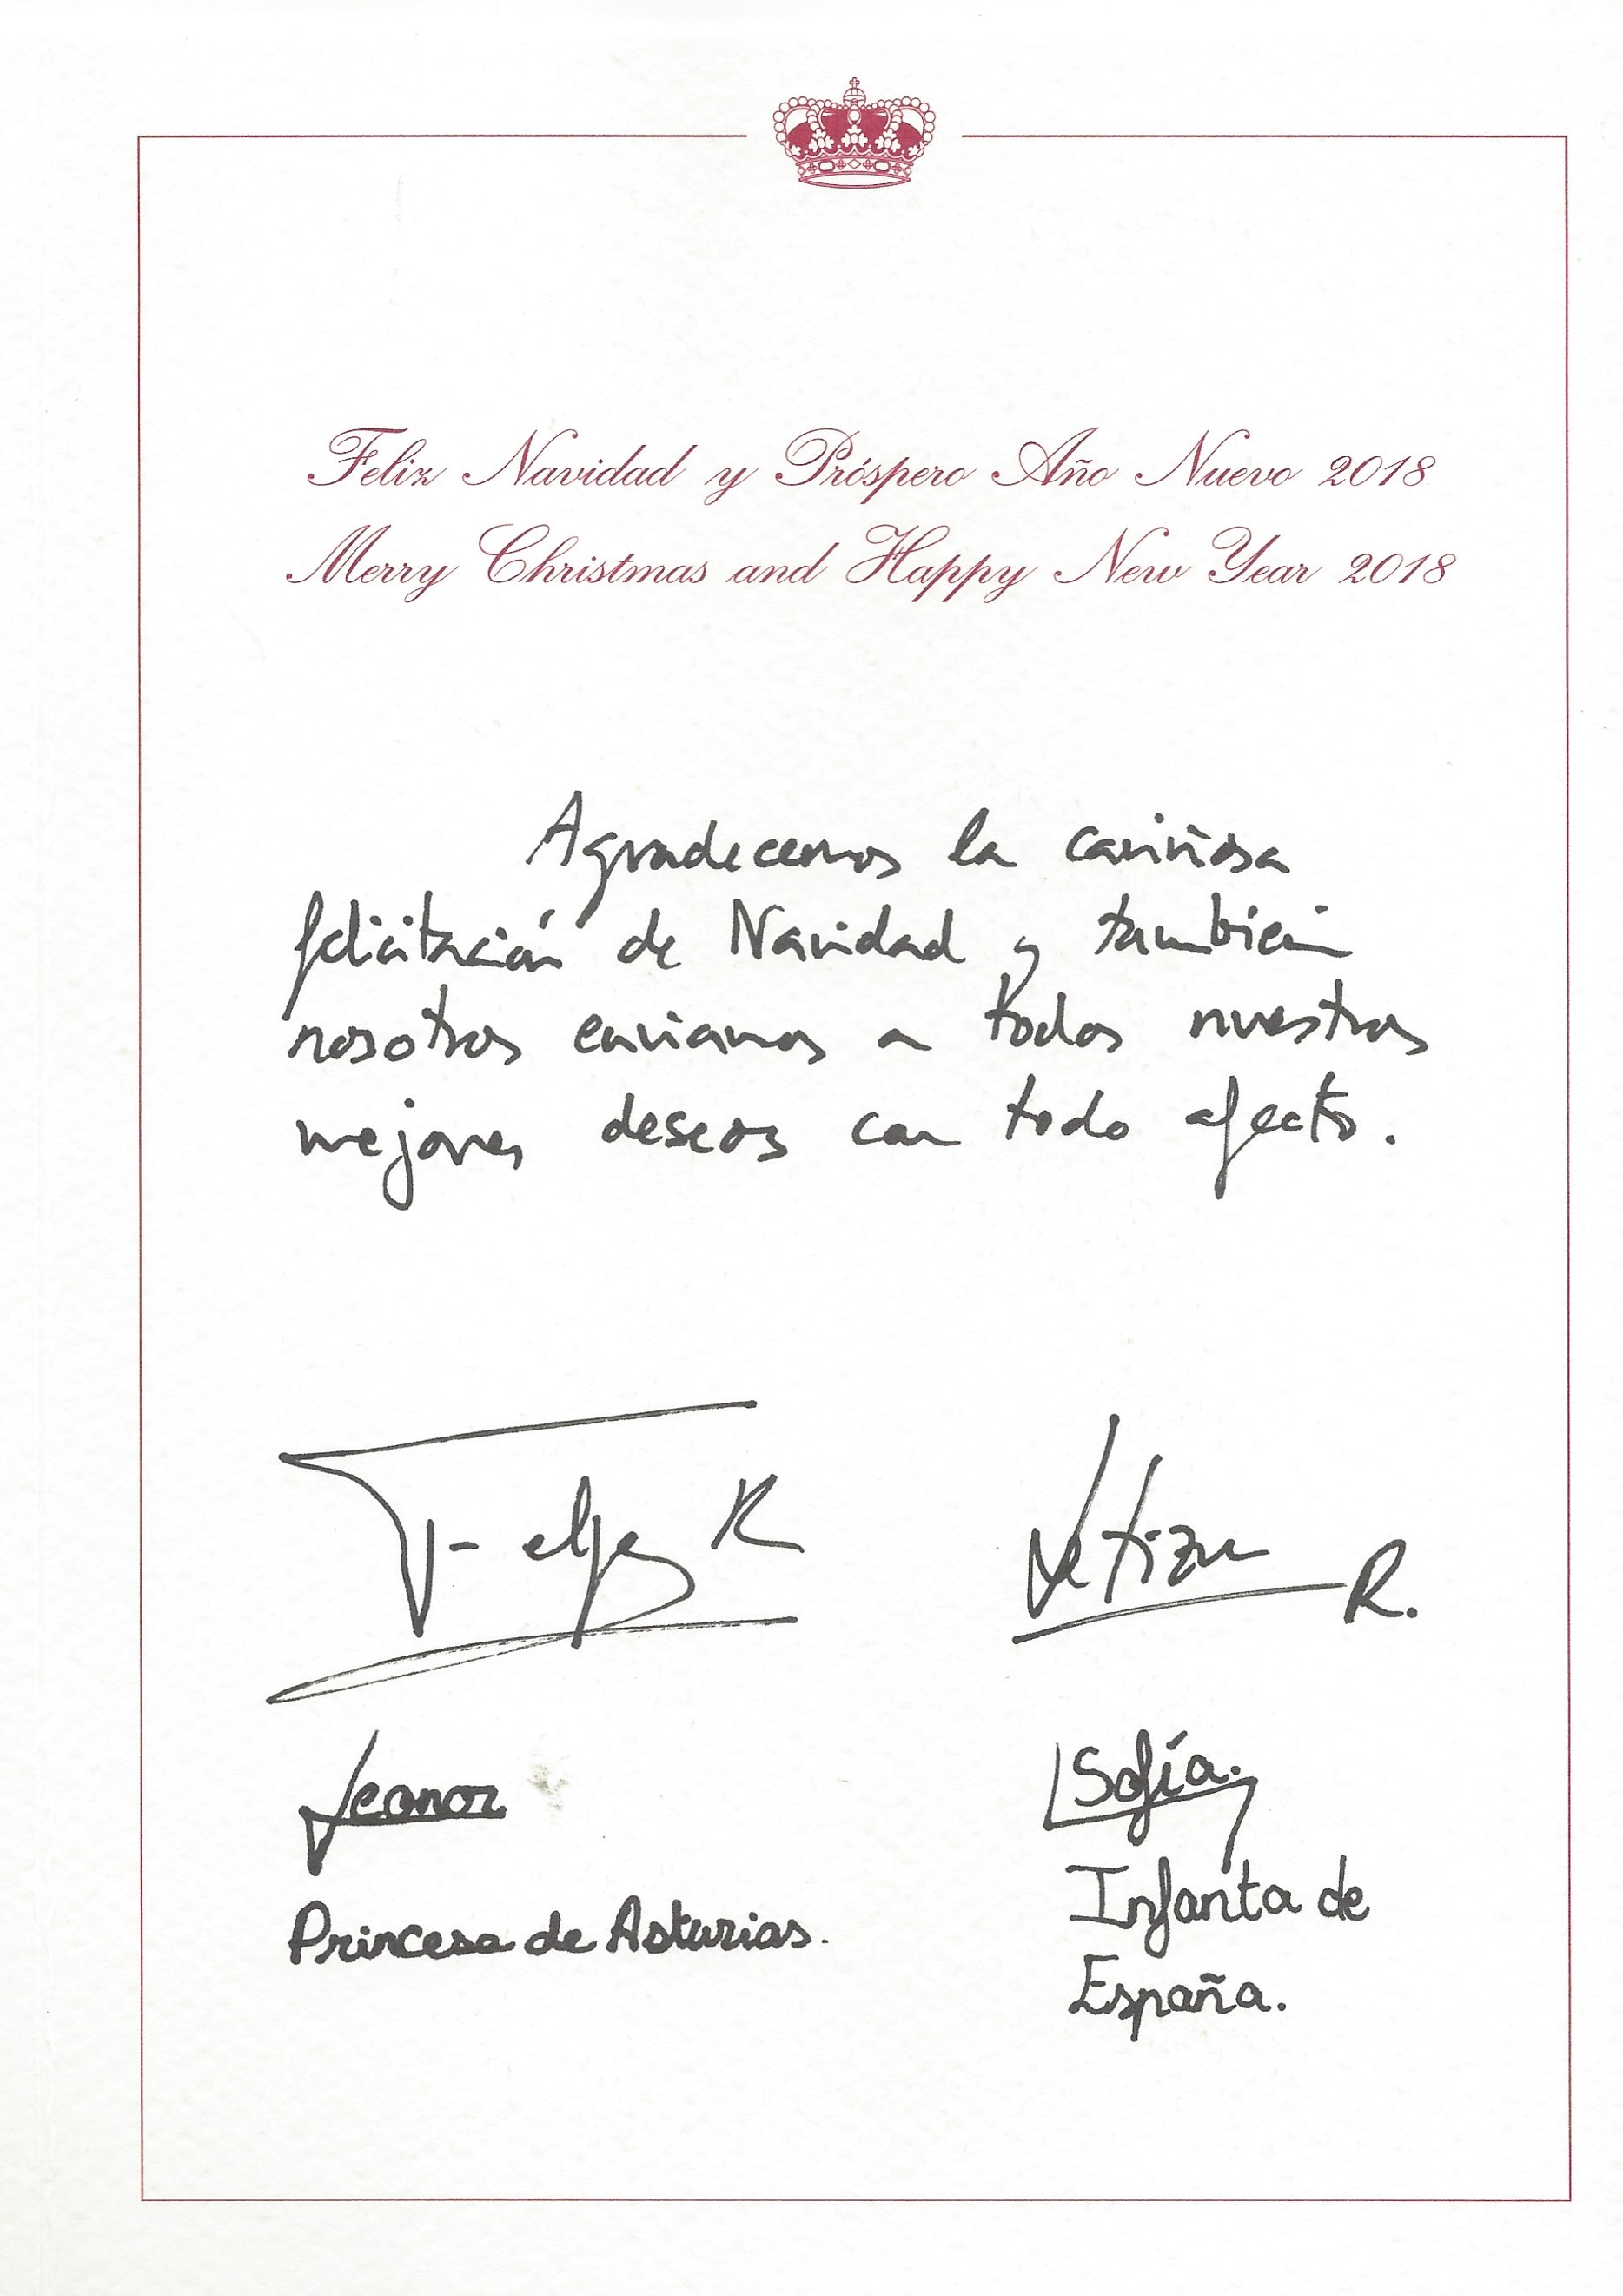 Feliz Navidad y Próspero Año Nuevo 2018
Merry Christmas and Happy New Year 2018
Agradecemos la cariñosa
felicitación de Navidad y también
nosotros enviamos a todos nuestros
mejores deseos con todo afecto.
Felipe R Letizia R.
Leonor Sofía.
Princesa de Asturias. Infanta de
España.